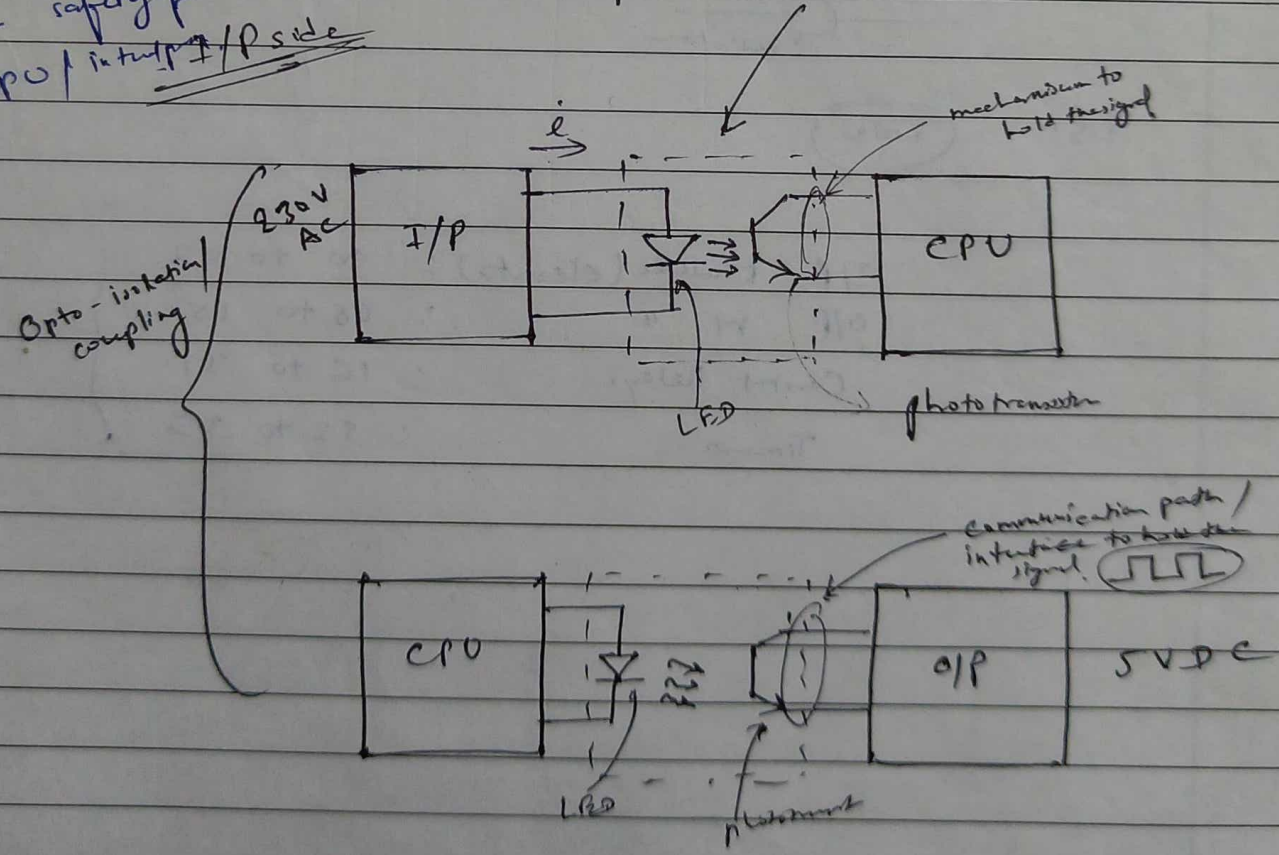 I/P side
i
mechanism to
hold the signal
230V
AC
I/P
CPU
Opto-isolation/
coupling
LED
phototransistor
communication path/
interface to hold the
signal.
CPU
O/P
5VDC
LED